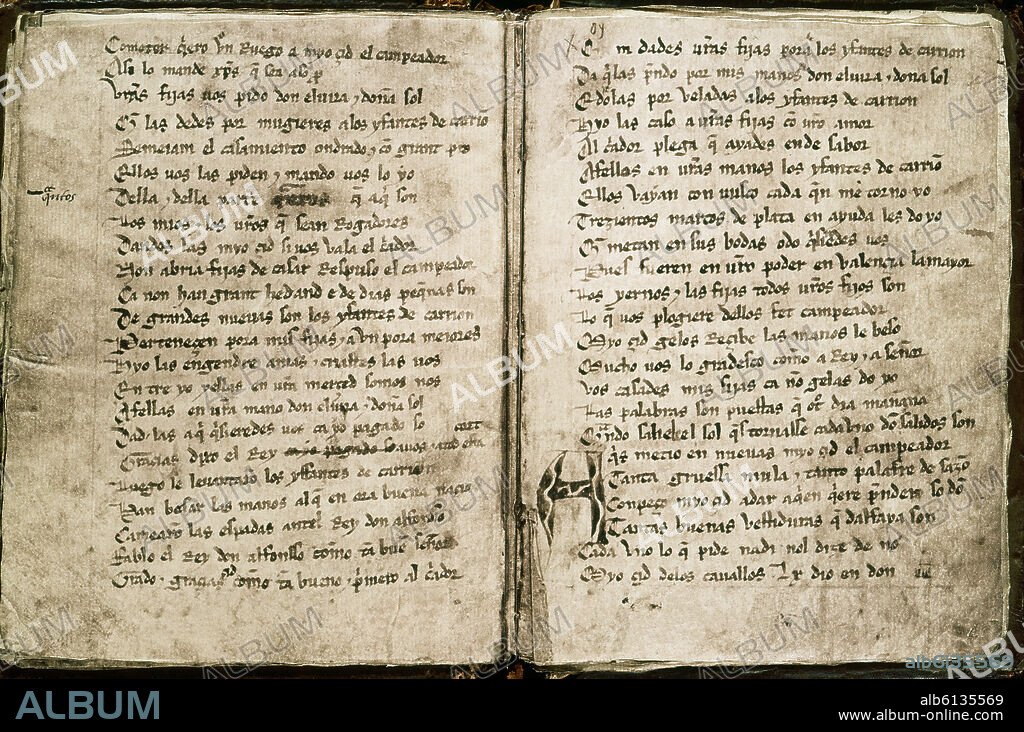 Cometer q̃ero vn Ruego a myo çid el campeador
Assi lo mande xp̃s q̃ sea a so p̃
Vr̃as fijas uos pido don eluira ⁊ doña sol
Q̃ las dedes por mugieres a los yfantes de carrio
Semeiam el casamiento ondrado ⁊ cõ grant p̃o
Ellos uos las piden ⁊ mando uos lo yo
Della ⁊ della parte q̃ aq̃ son
q̃ntos
Los mios ⁊ los ur̃os q̃ sean Rogadores
Dandos las myo çid si uos vala el c̃ador
Non abria fijas de casar Respuso el campeador
Ca non han grant hedand e de dias peq̃nas son
De grandes nueuas son los yfantes de carrion
Pertenecen pora mis fijas ⁊ avn pora meiores
Hyo las engendre amas ⁊ criastes las uos
Entre yo yellas en ur̃a merced somos nos
Afellas en ur̃a mano don eluira ⁊ doña sol
Dad las a q̃ q̃sieredes uos ca yo pagado so
Gracias dixo el Rey auos ⁊ atod esta cort
Luego se leuantarõ los yffantes de carrion
Ban besar las manos al q̃ en ora buena nacio
Camearõ las espadas antel Rey don alfonsso
Fablo el Rey don alfonsso commo tã buẽ señor
Grado ⁊ gracias commo tã bueno ⁊ p̃mero al c̃ador
Q̃ m dades ur̃as fijas pora los yfantes de carrion
Da q̃ las p̃ndo por mis manos don eluira ⁊ doña sol
E dolas por veladas a los yfantes de carrion
Hyo las caso a ur̃as fijas cõ ur̃o amor
Al c̃ador plega q̃ ayades ende sabor
Afellos en ur̃as manos los yfantes de carriõ
Ellos vayan con uusco cada q̃n me torno yo
Trezientos marcos de plata en ayuda les do yo
Q̃ metan en sus bodas o do q̃sieredes uos
Pues fueren en ur̃o poder en valençia la mayor
Los yernos ⁊ las fijas todos ur̃os fijos son
Lo q̃ uos plogiere dellos fet campeador
Myo çid gelos Recibe las manos le beso
Mucho uos lo gradesco como a Rey ⁊ a señor
Vos casades mis fijas ca nõ gelas do yo
Las palabras son puestas q̃ otro dia mañana
Q̃ndo salie el sol q̃s tornasse cada vno dõ salidos son
Aq̃s metio en nueuas myo çid el campeador
Tanta gruessa mula ⁊ tanto palafre de sazõ
Conpeço myo çid a dar a q̃en q̃ere p̃nder so dõ
Tantas buenas vestiduras q̃ dalfaya son
Cada vno lo q̃ pide nadi nol dize de no
Myo çid de los cauallos Lx dio en don
ALBUM
alb6135569
www.album-online.com